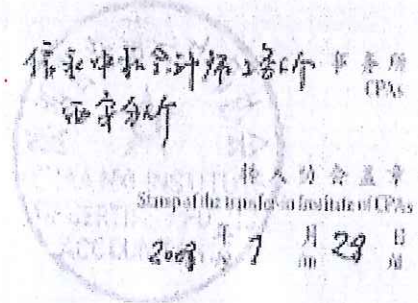 信永中和会计师事务所 事务所
CPAs
西安分所
转入协会盖章
Stamp of the transfer-in Institute of CPAs
2008 年 7 月 29 日
/y /m /d